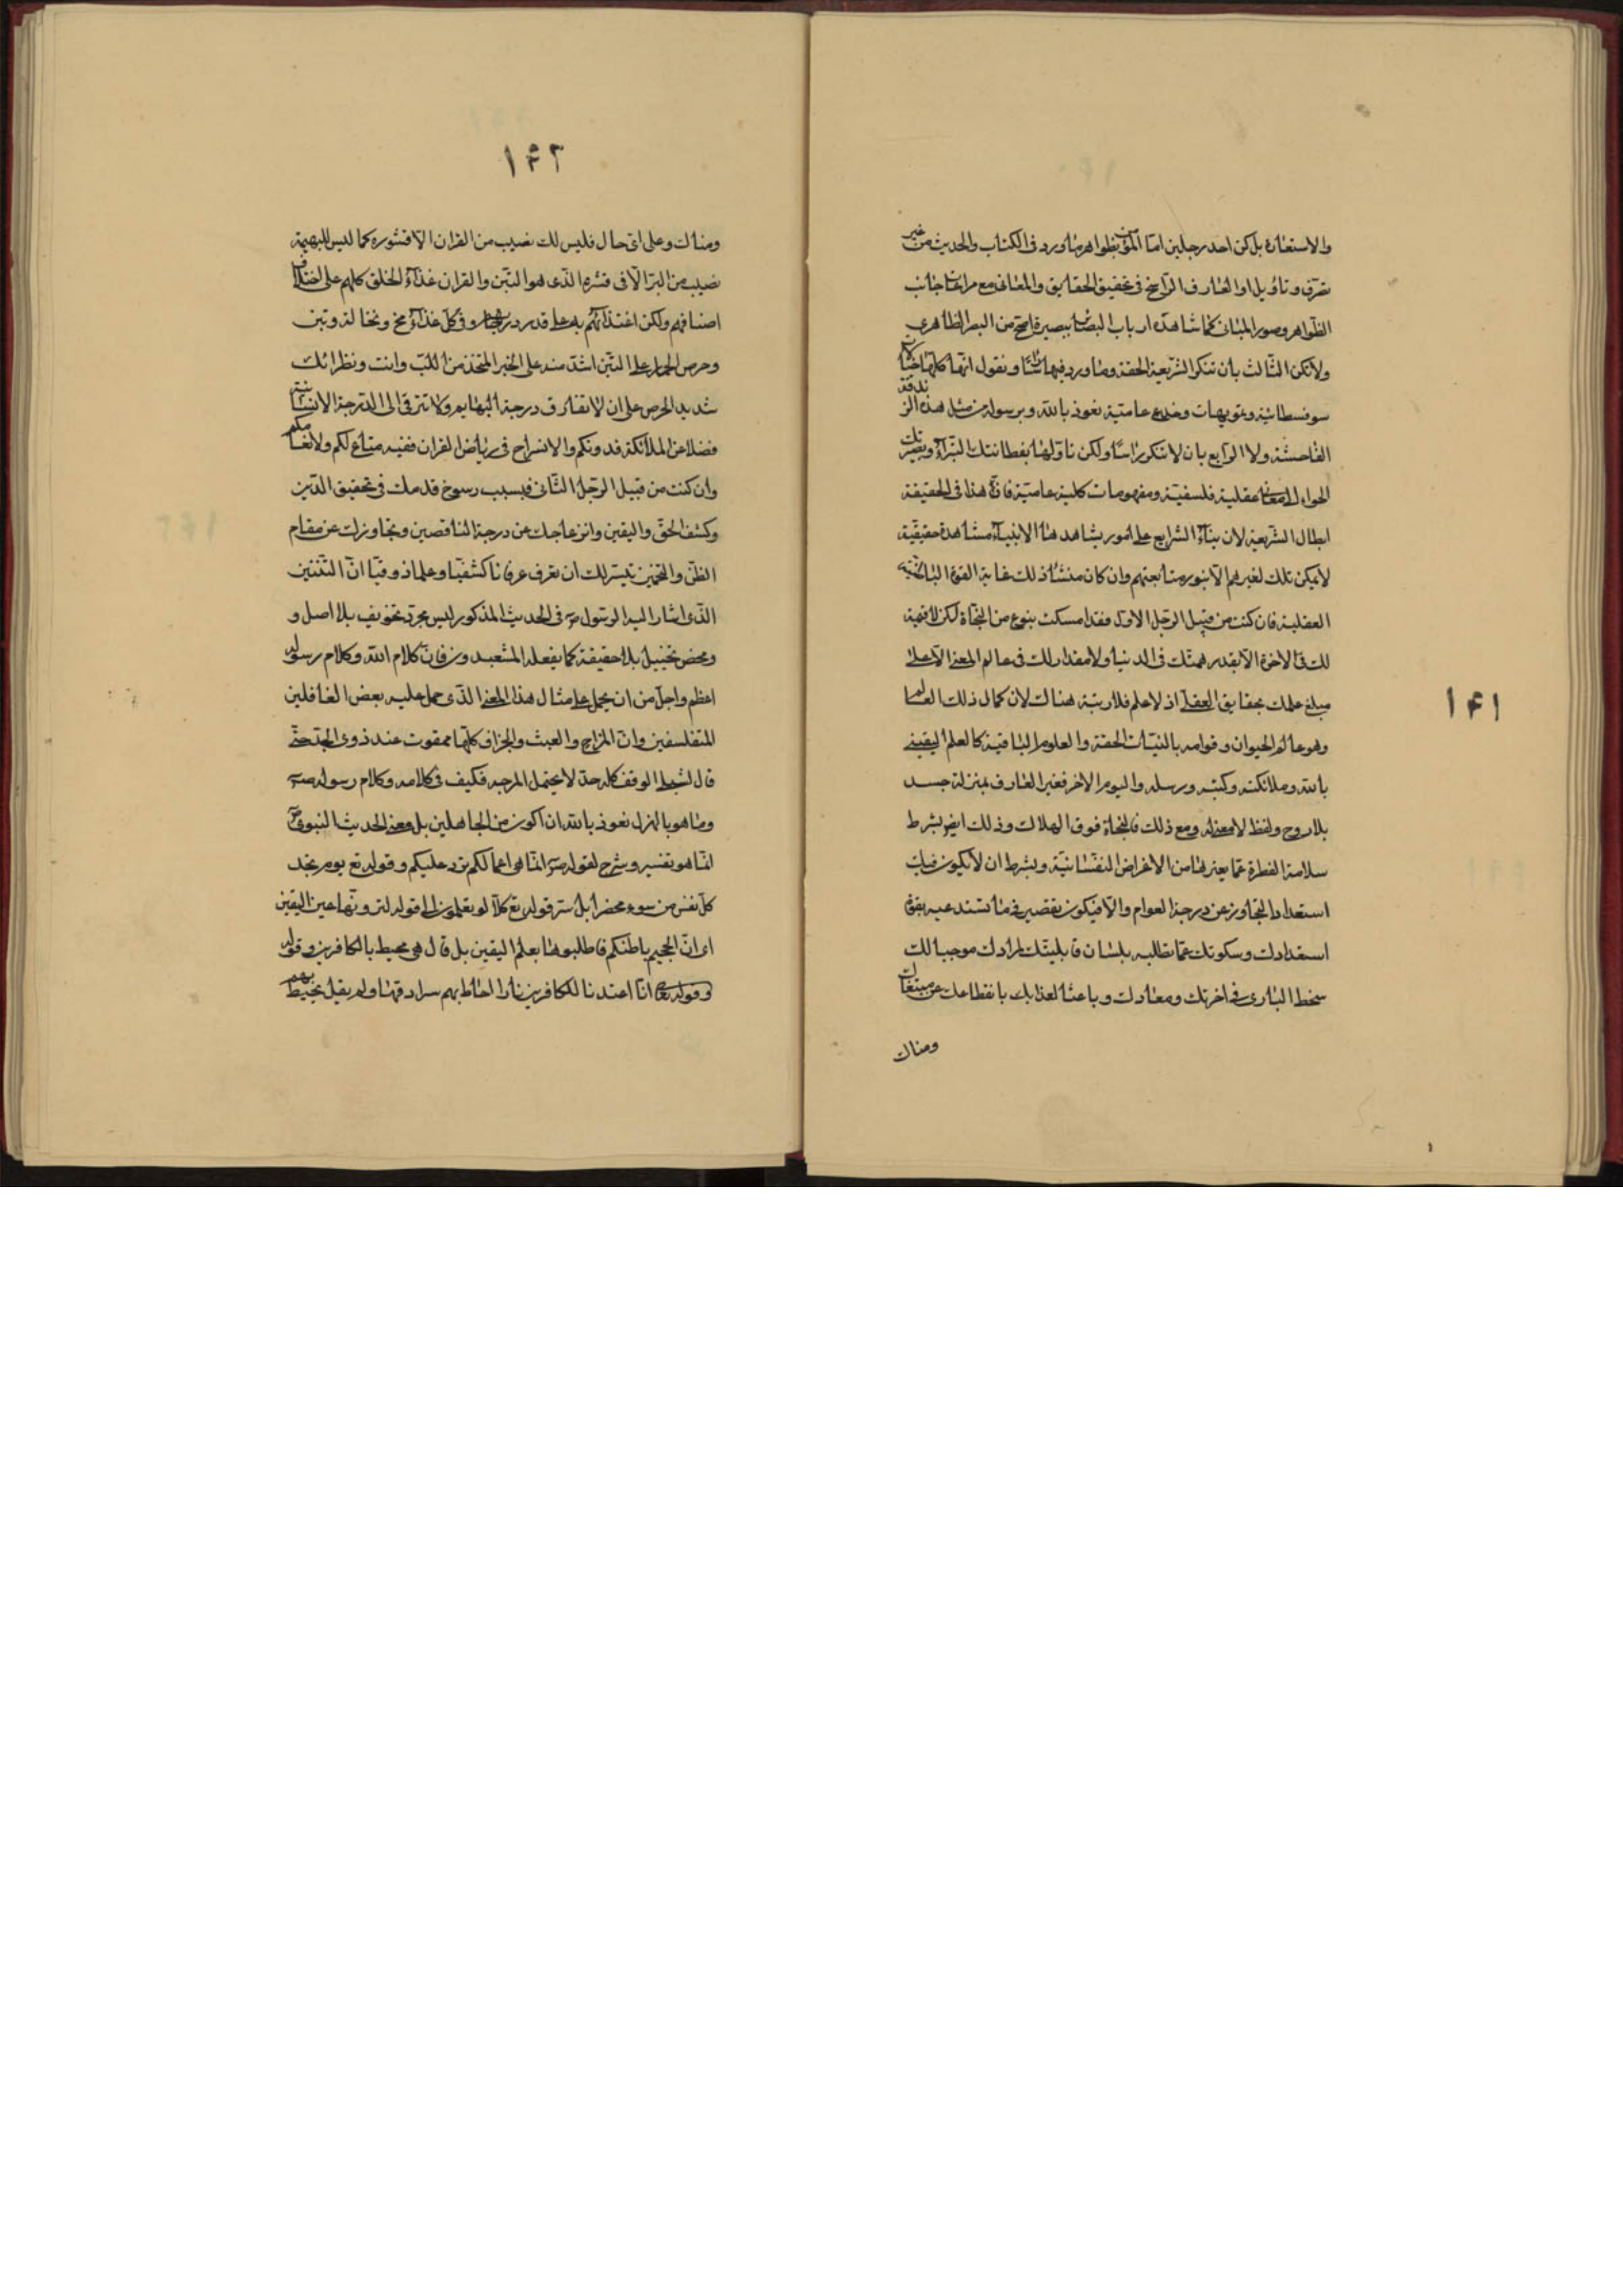 ١۴١
والاستعارة بل كن احد رجلين اما المؤمن بظواهر ما ورد فى الكتاب والحديث من غير
تصرف وتاويل او العارف الراسخ فى تحقيق الحقايق والمعانى مع مراعات جانب
الظواهر وصور المبانى كما شاهده ارباب البصاير ببصيرة اصح من البصر الظاهرى
ولاتكن الثالث بان تنكر الشريعة الحقة وما ورد فيها راسا وتقول انها كلها خيالات
سوفسطائية وتمويهات وخدع عامية نعوذ بالله وبرسوله من مثل هذه الزندقة
الفاحشة ولا الرابع بان لاتنكر راسا ولكن تاولها بفطانتك البتراء وبصيرتك
الحولاء الى معانى عقلية فلسفية ومفهومات كلية عامية فان هذا فى الحقيقة
ابطال الشريعة لان بناء الشرايع على امور يشاهدها الانبياء مشاهدة حقيقية
لايمكن تلك لغيرهم الا بنور متابعتهم وان كان منشأ ذلك غاية القوة الباطنية
العقلية فان كنت من قبيل الرجل الاول فقد امسكت بنوع من النجاة لكن لاقيمة
لك فى الاخرة الا بقدر همتك فى الدنيا ولا مقدار لك فى عالم المعنى الا على
مبلغ علمك بحقايق العقلى اذ لا علم فلا رتبة هناك لان كمال ذلك العالم
وهو عالم الحيوان وقوامه بالنيات الحقة والعلوم الباقية كالعلم اليقينى
بالله وملائكته وكتبه ورسله واليوم الاخر فغير العارف بمنزلة جسد
بلا روح ولفظ لا معنى له ومع ذلك فالنجاة فوق الهلاك وذلك ايض بشرط
سلامة الفطرة عما يغيرها من الاغراض النفسانية وبشرط ان لايكون فيك
استعداد التجاوز عن درجة العوام والا فيكون تقصير فى ما تستدعيه بقوة
استعدادك وسكوتك عما تطلبه بلسان قابليتك لمرادك موجبا لك
سخط البارى فى اخرتك ومعادك وباعثا لعذابك بانقطاعك عن مبتغاك
ومناك
١۴٢
ومناك وعلى اى حال فليس لك نصيب من القران الا قشوره كما ليس للبهيمة
نصيب من البر الا فى قشره الذى هو التبن والقران غذاء الخلق كلهم على اختلاف
اصنافهم ولكن اغتذائهم به على قدر درجاتهم وفى كل غذاء مخ ونخالة وتبن
وحرص الحمار على التبن اشد منه على الخبز المتخذ من اللب وانت ونظرائك
شديد الحرص على ان لاتفارق درجة البهايم ولاتترقى الى الدرجة الانسانية
فضلا عن الملائكة فدونكم والانسراح فى رياض القران ففيه متاع لكم ولانعامكم
وان كنت من قبيل الرجل الثانى فبسبب رسوخ قدمك فى تحقيق الدين
وكشف الحق واليقين وانزعاجك عن درجة الناقصين وتجاوزك عن مقام
الظن والتخمين تيسر لك ان تعرف عرفانا كشفيا وعلما ذوقيا ان التنين
الذى اشار اليه الرسول ص فى الحديث المذكور ليس مجرد تخويف بلا اصل و
ومحض تخييل بلا حقيقة كما يفعله المشعبدون فان كلام الله وكلام رسوله
اعظم واجل من ان يحمل على مثال هذا المعنى الذى حمل عليه بعض الغافلين
المتفلسفين وان المزاح والعبث والجزاف كلها ممقوت عند ذوى الجد حتى
قال الشبلى الوقف كله جد لايحتمل المزح فيه فكيف فى كلامه وكلام رسوله ص
وما هو بالهزل نعوذ بالله ان اكون من الجاهلين بل معنى الحديث النبوى ص
انما هو تفسير وشرح لقوله ص انما هى اعمالكم ترد عليكم وقوله تع يوم تجد
كل نفس من سوء محضرا بل سر قوله تع كلا لو تعلمون الى قوله لترونها عين اليقين
اى ان الجحيم باطنكم فاطلبوها بعلم اليقين بل قال هى محيط بالكافرين وقوله
وقوله تعا انا اعتدنا للكافرين نارا احاط بهم سرادقها ولم يقل يحيط بهم